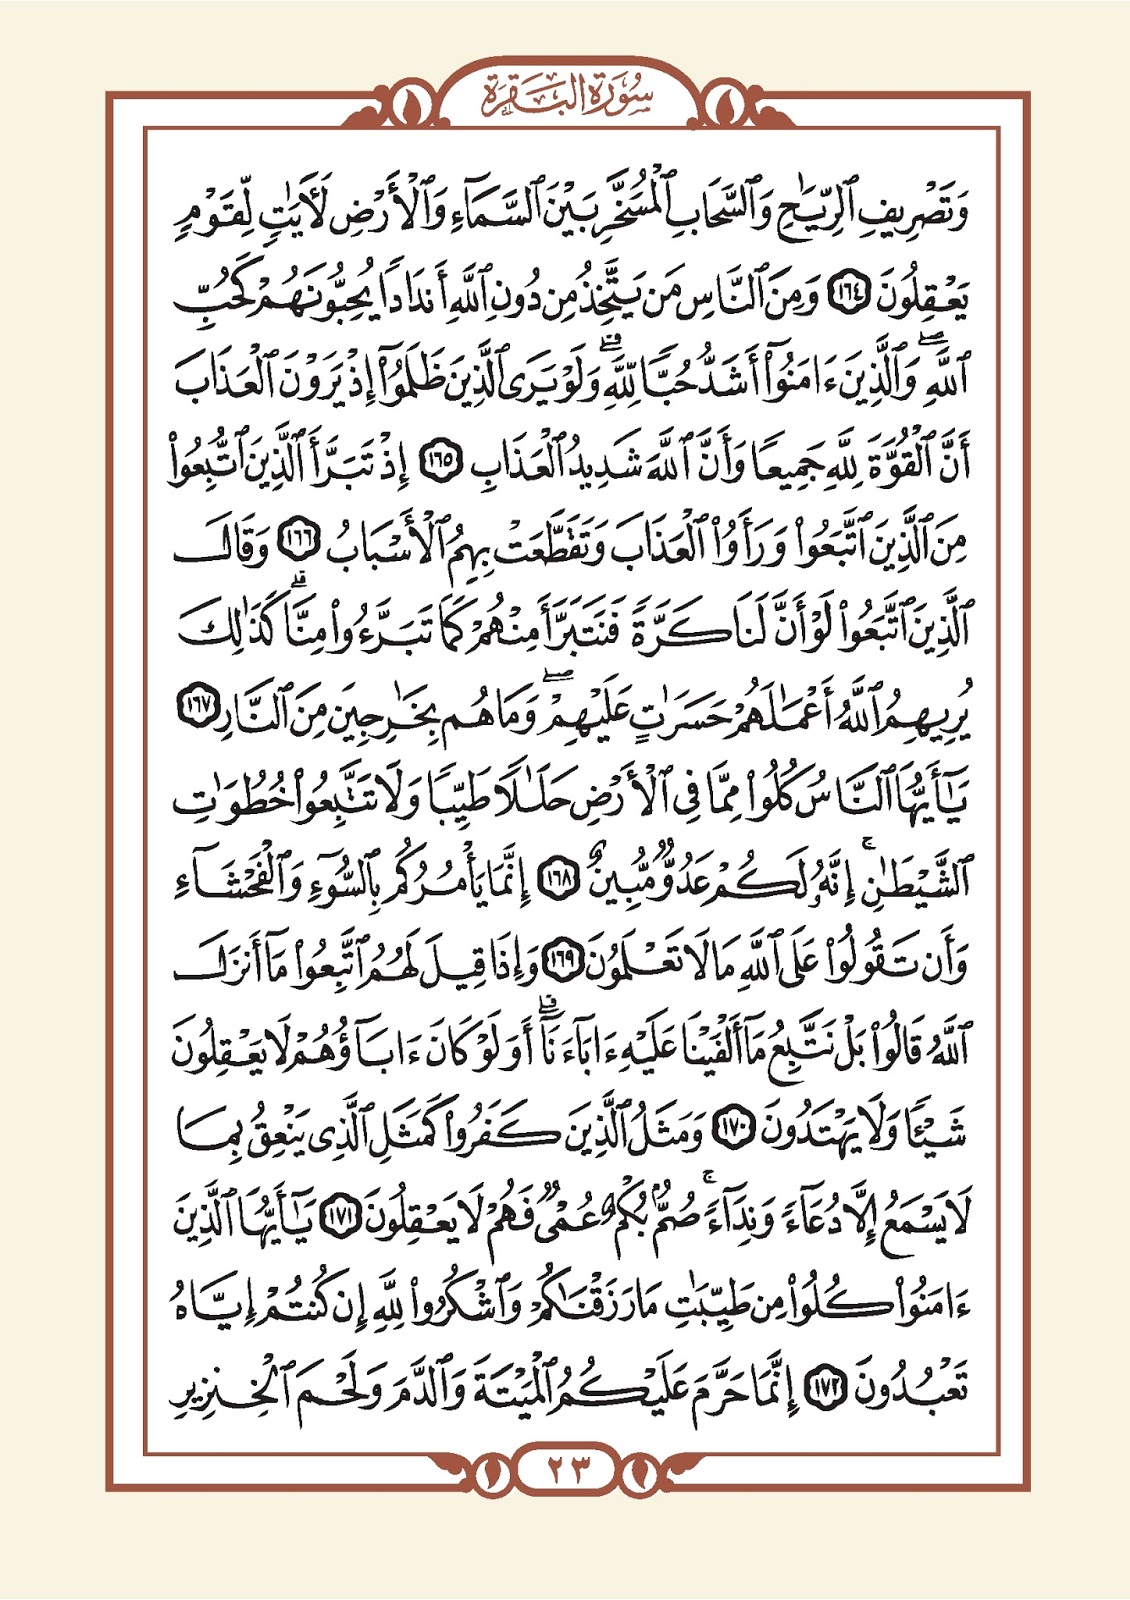 سُورَةُ البَقَرَةِ
وَتَصْرِيفِ ٱلرِّيَٰحِ وَٱلسَّحَابِ ٱلْمُسَخَّرِ بَيْنَ ٱلسَّمَآءِ وَٱلْأَرْضِ لَأٓيَٰتٍ لِّقَوْمٍ
يَعْقِلُونَ ١٦٤ وَمِنَ ٱلنَّاسِ مَن يَتَّخِذُ مِن دُونِ ٱللَّهِ أَندَادًا يُحِبُّونَهُمْ كَحُبِّ
ٱللَّهِۖ وَٱلَّذِينَ ءَامَنُوٓا۟ أَشَدُّ حُبًّا لِّلَّهِۗ وَلَوْ يَرَى ٱلَّذِينَ ظَلَمُوٓا۟ إِذْ يَرَوْنَ ٱلْعَذَابَ
أَنَّ ٱلْقُوَّةَ لِلَّهِ جَمِيعًا وَأَنَّ ٱللَّهَ شَدِيدُ ٱلْعَذَابِ ١٦٥ إِذْ تَبَرَّأَ ٱلَّذِينَ ٱتُّبِعُوا۟
مِنَ ٱلَّذِينَ ٱتَّبَعُوا۟ وَرَأَوُا۟ ٱلْعَذَابَ وَتَقَطَّعَتْ بِهِمُ ٱلْأَسْبَابُ ١٦٦ وَقَالَ
ٱلَّذِينَ ٱتَّبَعُوا۟ لَوْ أَنَّ لَنَا كَرَّةً فَنَتَبَرَّأَ مِنْهُمْ كَمَا تَبَرَّءُوا۟ مِنَّاۗ كَذَٰلِكَ
يُرِيهِمُ ٱللَّهُ أَعْمَٰلَهُمْ حَسَرَٰتٍ عَلَيْهِمْۖ وَمَا هُم بِخَٰرِجِينَ مِنَ ٱلنَّارِ ١٦٧
يَٰٓأَيُّهَا ٱلنَّاسُ كُلُوا۟ مِمَّا فِى ٱلْأَرْضِ حَلَٰلًا طَيِّبًا وَلَا تَتَّبِعُوا۟ خُطُوَٰتِ
ٱلشَّيْطَٰنِۚ إِنَّهُۥ لَكُمْ عَدُوٌّ مُّبِينٌ ١٦٨ إِنَّمَا يَأْمُرُكُم بِٱلسُّوٓءِ وَٱلْفَحْشَآءِ
وَأَن تَقُولُوا۟ عَلَى ٱللَّهِ مَا لَا تَعْلَمُونَ ١٦٩ وَإِذَا قِيلَ لَهُمُ ٱتَّبِعُوا۟ مَآ أَنزَلَ
ٱللَّهُ قَالُوا۟ بَلْ نَتَّبِعُ مَآ أَلْفَيْنَا عَلَيْهِ ءَابَآءَنَآۗ أَوَلَوْ كَانَ ءَابَآؤُهُمْ لَا يَعْقِلُونَ
شَيْـًٔا وَلَا يَهْتَدُونَ ١٧٠ وَمَثَلُ ٱلَّذِينَ كَفَرُوا۟ كَمَثَلِ ٱلَّذِى يَنْعِقُ بِمَا
لَا يَسْمَعُ إِلَّا دُعَآءً وَنِدَآءًۚ صُمٌّۢ بُكْمٌ عُمْىٌ فَهُمْ لَا يَعْقِلُونَ ١٧١ يَٰٓأَيُّهَا ٱلَّذِينَ
ءَامَنُوا۟ كُلُوا۟ مِن طَيِّبَٰتِ مَا رَزَقْنَٰكُمْ وَٱشْكُرُوا۟ لِلَّهِ إِن كُنتُمْ إِيَّاهُ
تَعْبُدُونَ ١٧٢ إِنَّمَا حَرَّمَ عَلَيْكُمُ ٱلْمَيْتَةَ وَٱلدَّمَ وَلَحْمَ ٱلْخِنزِيرِ
٢٣